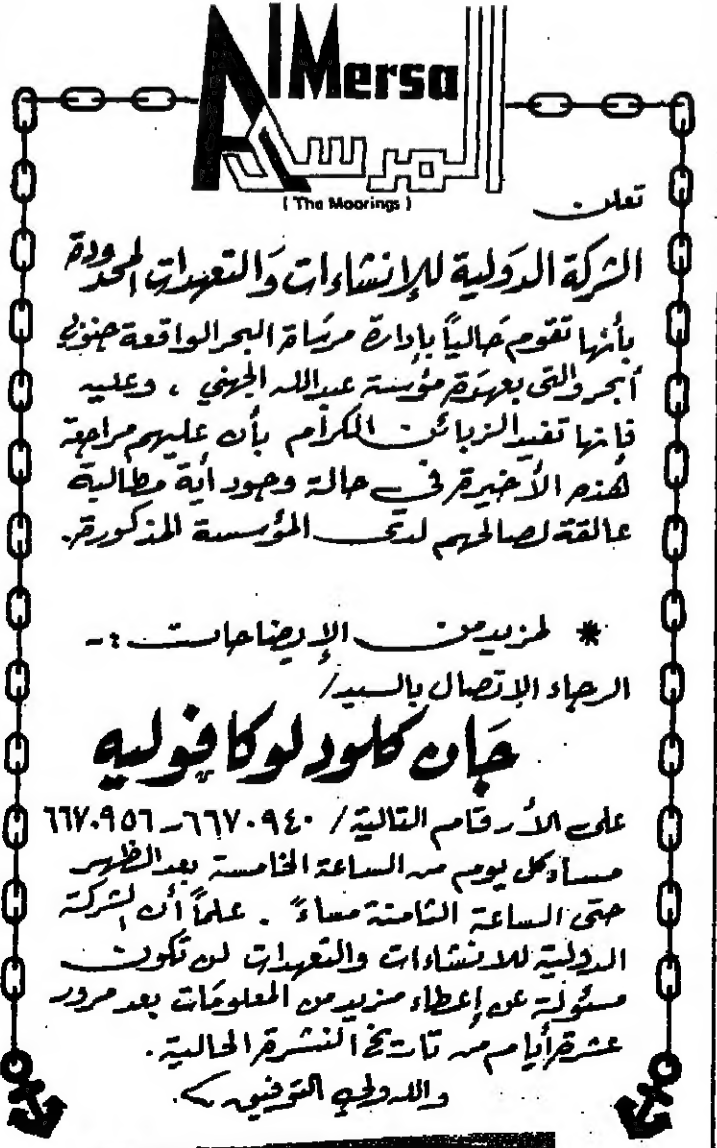 Al Mersa
المرساة
( The Moorings )
تعلن
الشركة الدولية للإنشاءات والتعهدات المحدودة
بأنها تقوم حالياً بإدارة مرساة البحر الواقعة جنوبي
أبحر والتي بعهدة مؤسسة عبدالله الجهني ، وعليه
فإنها تفيد الزبائن الكرام بأن عليهم مراجعة
هذه الأخيرة في حالة وجود أية مطالبة
عالقة لصالحهم لدى المؤسسة المذكورة.
* لمزيد من الإيضاحات :-
الرجاء الإتصال بالسيد/
جان كلود لوكافوليه
على الأرقام التالية / ٦٦٧٠٩٤٠ - ٦٦٧٠٩٥٦
مساء كل يوم من الساعة الخامسة بعد الظهر
حتى الساعة الثامنة مساءً . علماً أن الشركة
الدولية للانشاءات والتعهدات لن تكون
مسئولة عن إعطاء مزيد من المعلومات بعد مرور
عشرة أيام من تاريخ النشرة الحالية .
والله ولي التوفيق